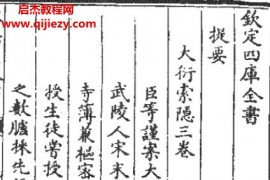 启杰教程网
欽定四庫全書
提要
大衍索隱三卷
臣等謹案大
武陵人宋末
寺簿兼樞密
授生徒嘗授
之數臚採先